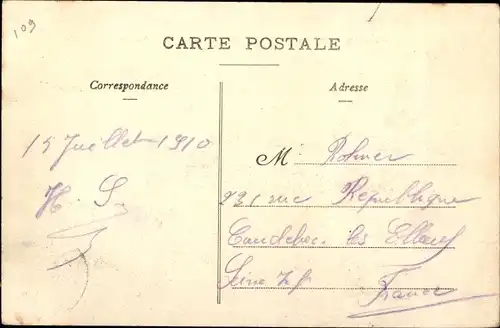 109
CARTE POSTALE
Correspondance
Adresse
15 Juillet 1910
H. S.
M Rohmer
231 rue République
Caudebec les Elbeuf
Seine Inf
France